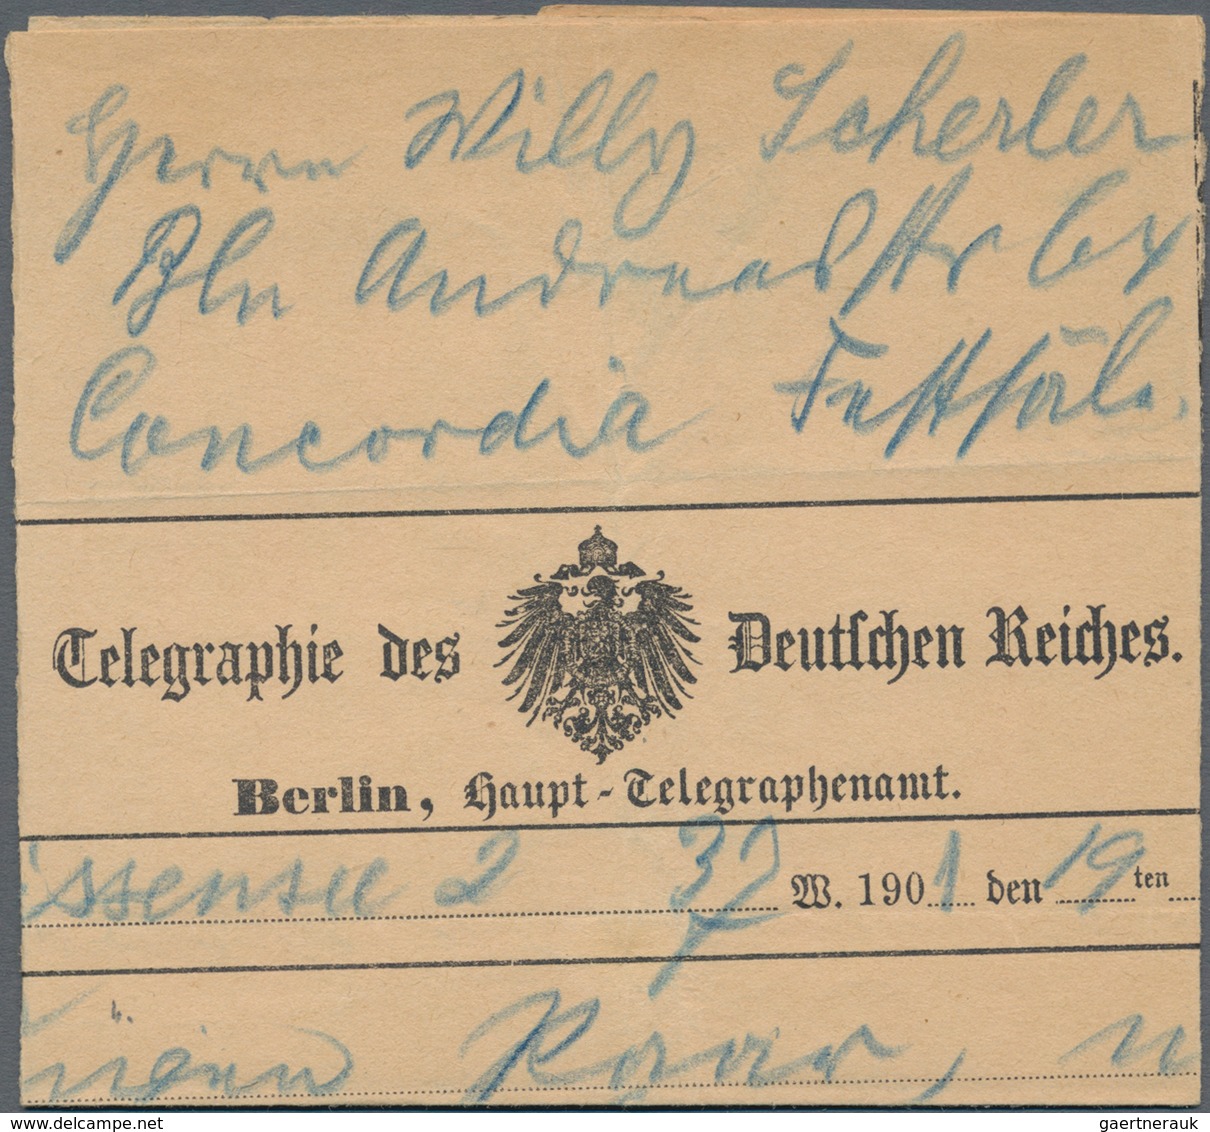 Herrn Willy Scherler
Bln Andreasstr 64
Concordia Festsäle.
Telegraphie des Deutschen Reiches.
Berlin, Haupt-Telegraphenamt.
issensee 2 37 W. 1901 den 19ten
Paar,
delcampe.net
gaertnerauk